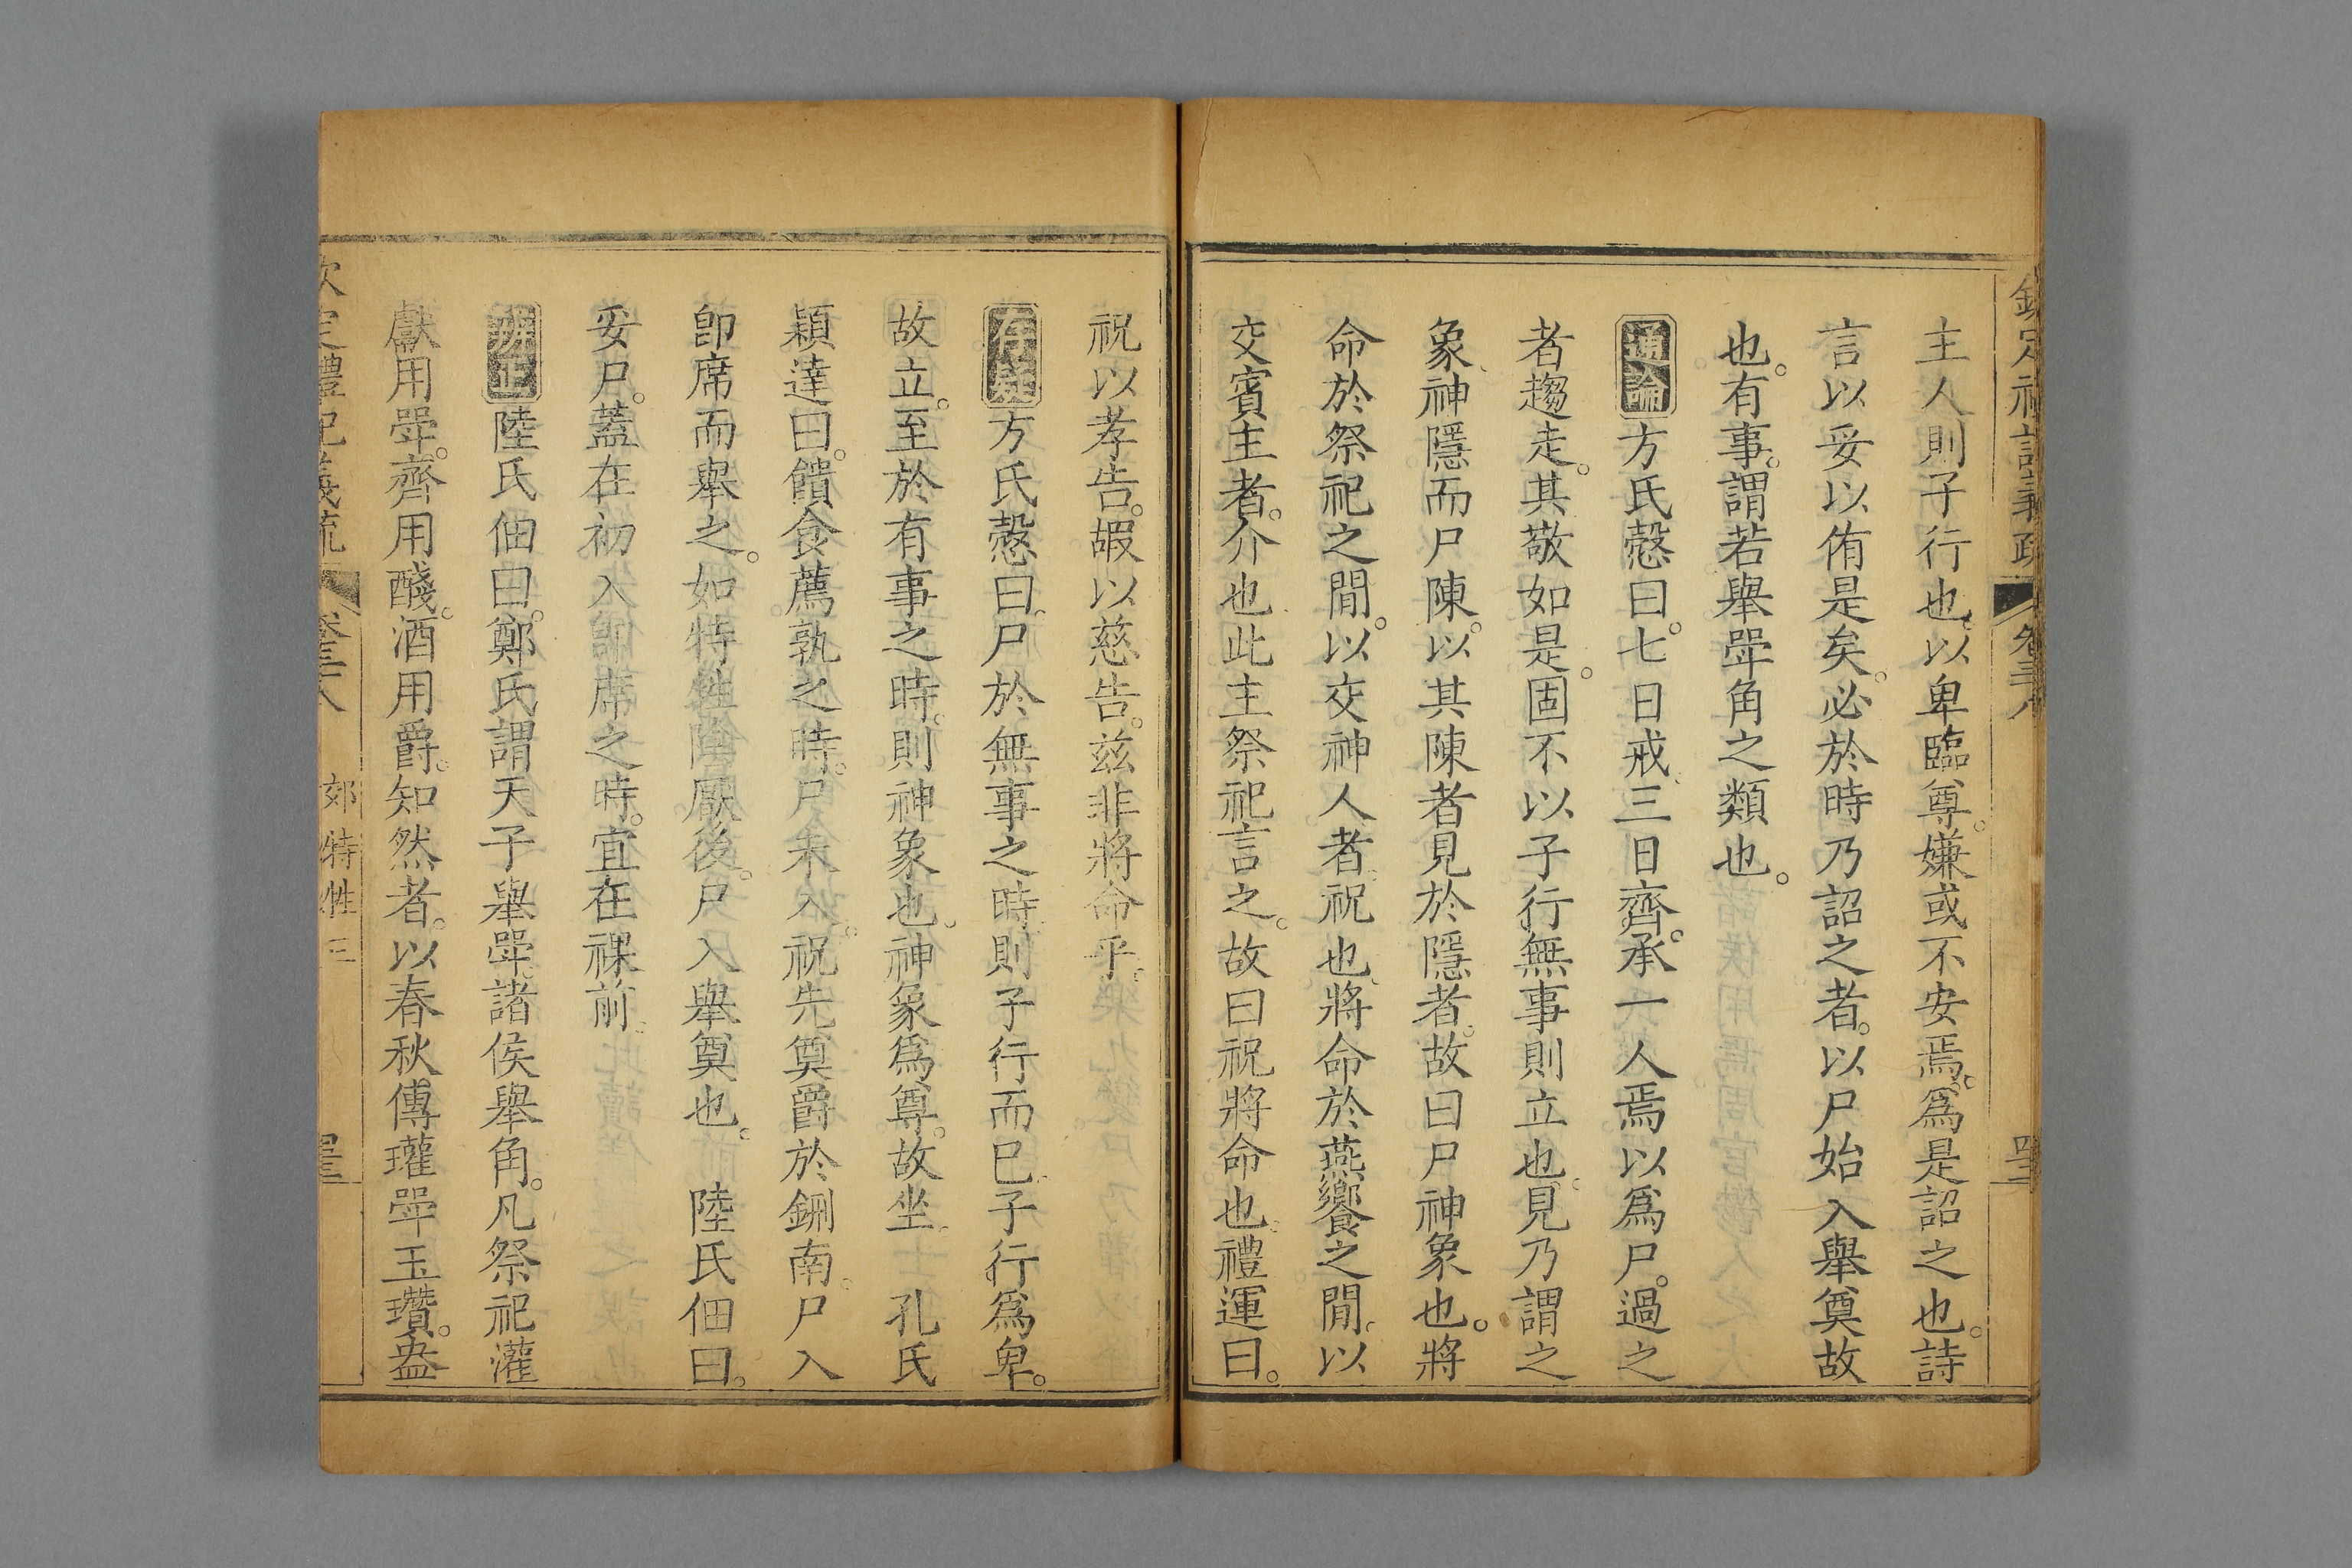 欽定禮記義疏 卷三十八
主人則子行也。以卑臨尊。嫌或不安焉。爲是詔之也。詩
言以妥以侑是矣。必於時乃詔之者。以尸始入舉奠故
也。有事。謂若舉斝角之類也。
通論方氏慤曰。七日戒。三日齊。承一人焉以爲尸。過之
者趨走。其敬如是。固不以子行無事則立也。見乃謂之
象。神隱而尸陳。以其陳者見於隱者。故曰尸神象也。將
命於祭祀之閒。以交神人者。祝也。將命於燕饗之閒。以
交賓主者。介也此主祭祀言之。故曰祝將命也。禮運曰。
祝以孝告。嘏以慈告。茲非將命乎。
存疑方氏慤曰。尸於無事之時。則子行而已。子行爲卑。
故立。至於有事之時。則神象也。神象爲尊。故坐。 孔氏
穎達曰。饋食薦孰之時。尸未入。祝先奠爵於鉶南。尸入
卽席而舉之。如特牲陰厭後。尸入舉奠也。 陸氏佃曰。
妥尸。蓋在初入卽席之時。宜在祼前。
辨正陸氏佃曰。鄭氏謂天子舉斝。諸侯舉角。凡祭祀灌
獻用斝。齊用醆。酒用爵。知然者。以春秋傳瓘斝玉瓚。盎
欽定禮記義疏 卷三十八 郊特牲 三